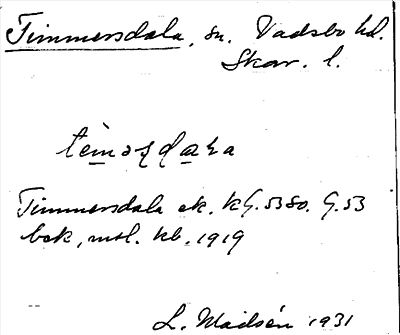 Timmersdala, sn. Vadsbo hd.
Skar. l.
Timmersdala ek. kG. 53 So. G. 53
bok, mtl. kb. 1919
L. Madsén 1931